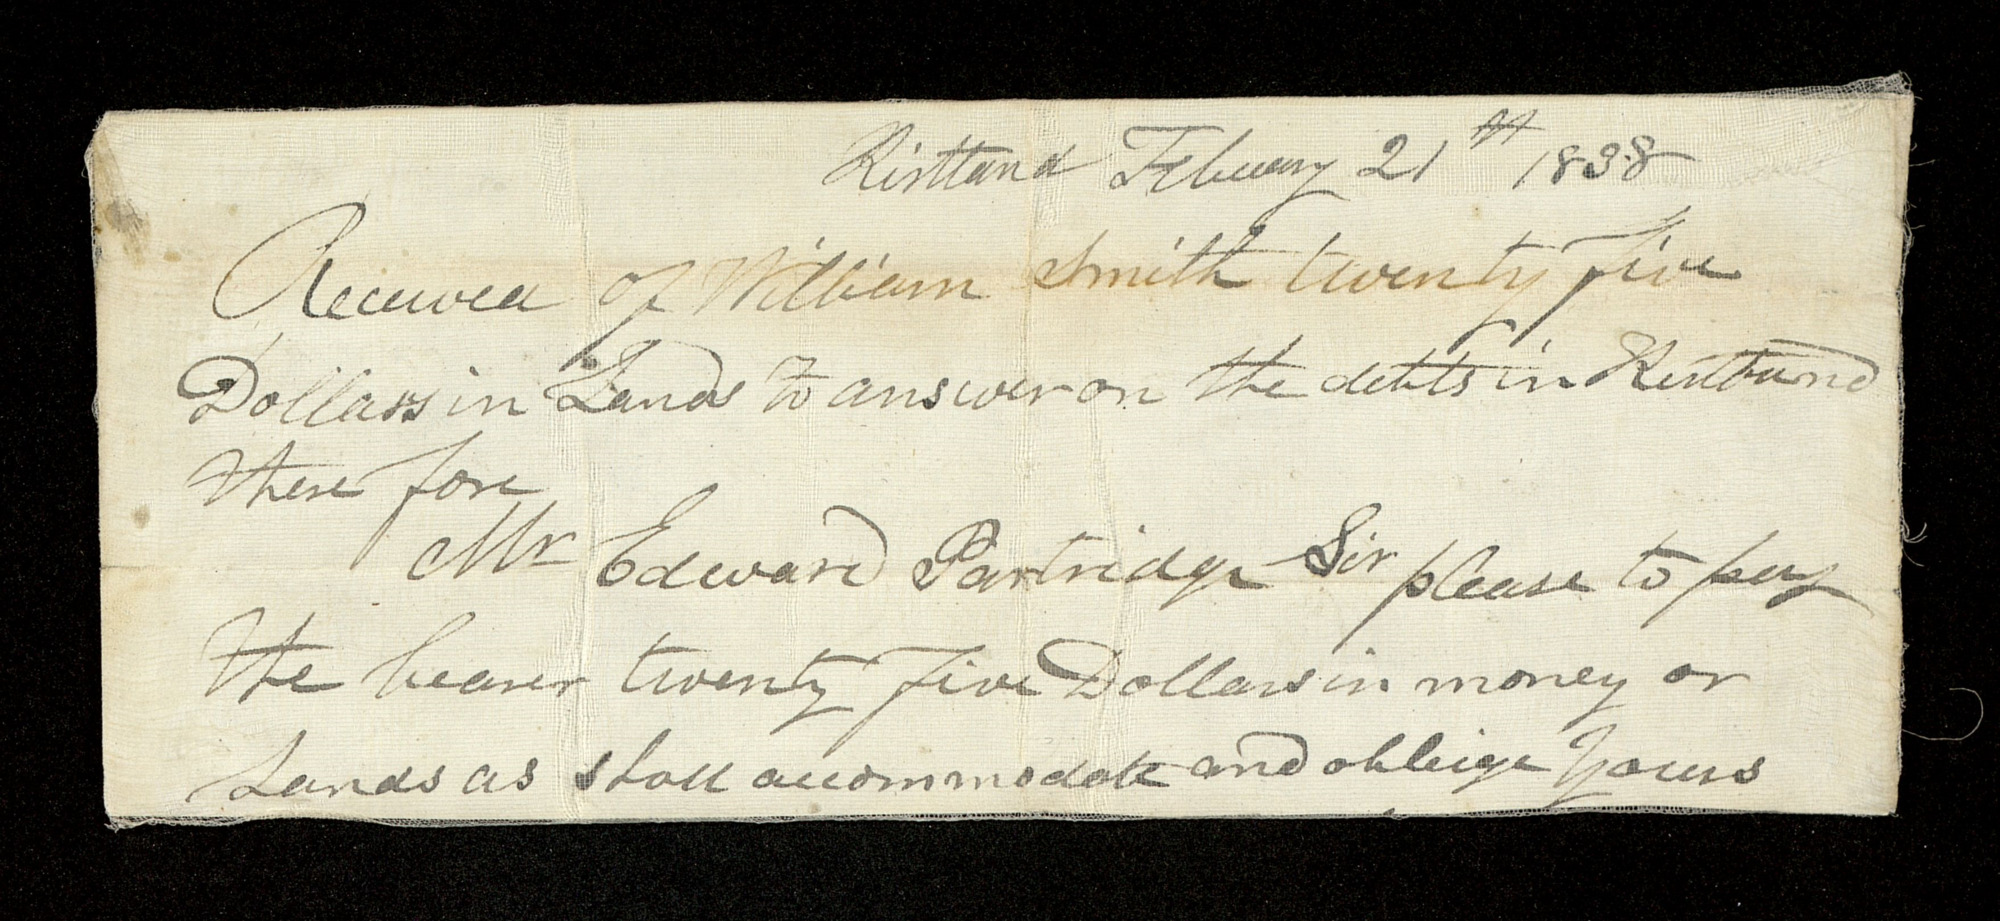 Kirtland Febuary 21th 1838
Received of William Smith twenty five
Dollars in Lands to answer on the debts in Kirtland
there fore
Mr Edward Partridge Sir please to pay
the bearer twenty five Dollars in money or
Lands as shall accommodate and obleige Yours